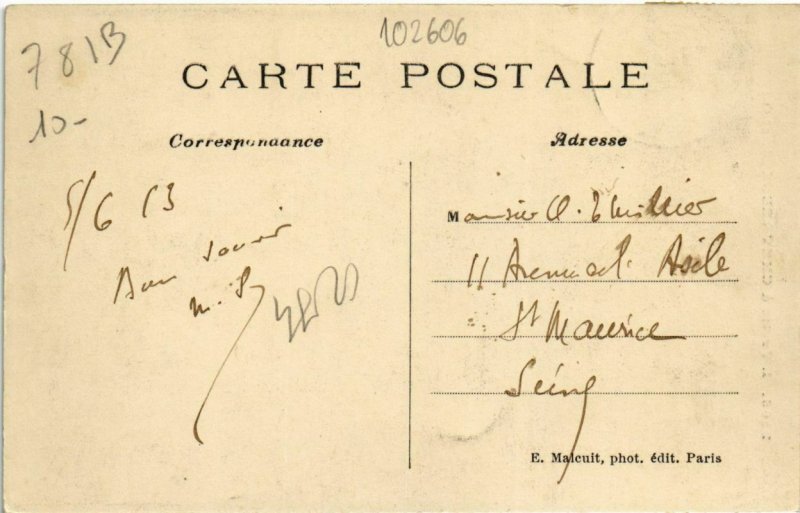 102606
781B
10-
CARTE POSTALE
Correspondance
Adresse
5/6 13
Bon
M.
Monsieur
11 Avenue de Asile
St Maurice
Seine
E. Malcuit, phot. édit. Paris